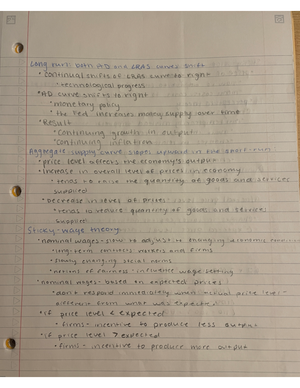 Long run: both AD and LRAS curves shift
• Continual shifts of LRAS curve to right
• technological progress
• AD curve shifts to right
• monetary policy
• the Fed increases money supply over time
• Result
• Continuing growth in output
• Continuing inflation
Aggregate supply curve slopes upward in the short run
• price level affects the economy's output
• Increase in overall level of prices in economy
• tends to raise the quantity of goods and services
supplied
• Decrease in level of prices
• tends to reduce quantity of goods and services
supplied
Sticky-wage theory
• nominal wages - slow to adjust to changing economic
• long-term contracts: workers and firms
• slowly changing social norms
• notions of fairness - influence wage setting
• nominal wages - based on expected prices
• don't respond immediately when actual price level -
different from what was expected
• if price level < expected
• firms - incentive to produce less output
• if price level > expected
• firms - incentive to produce more output